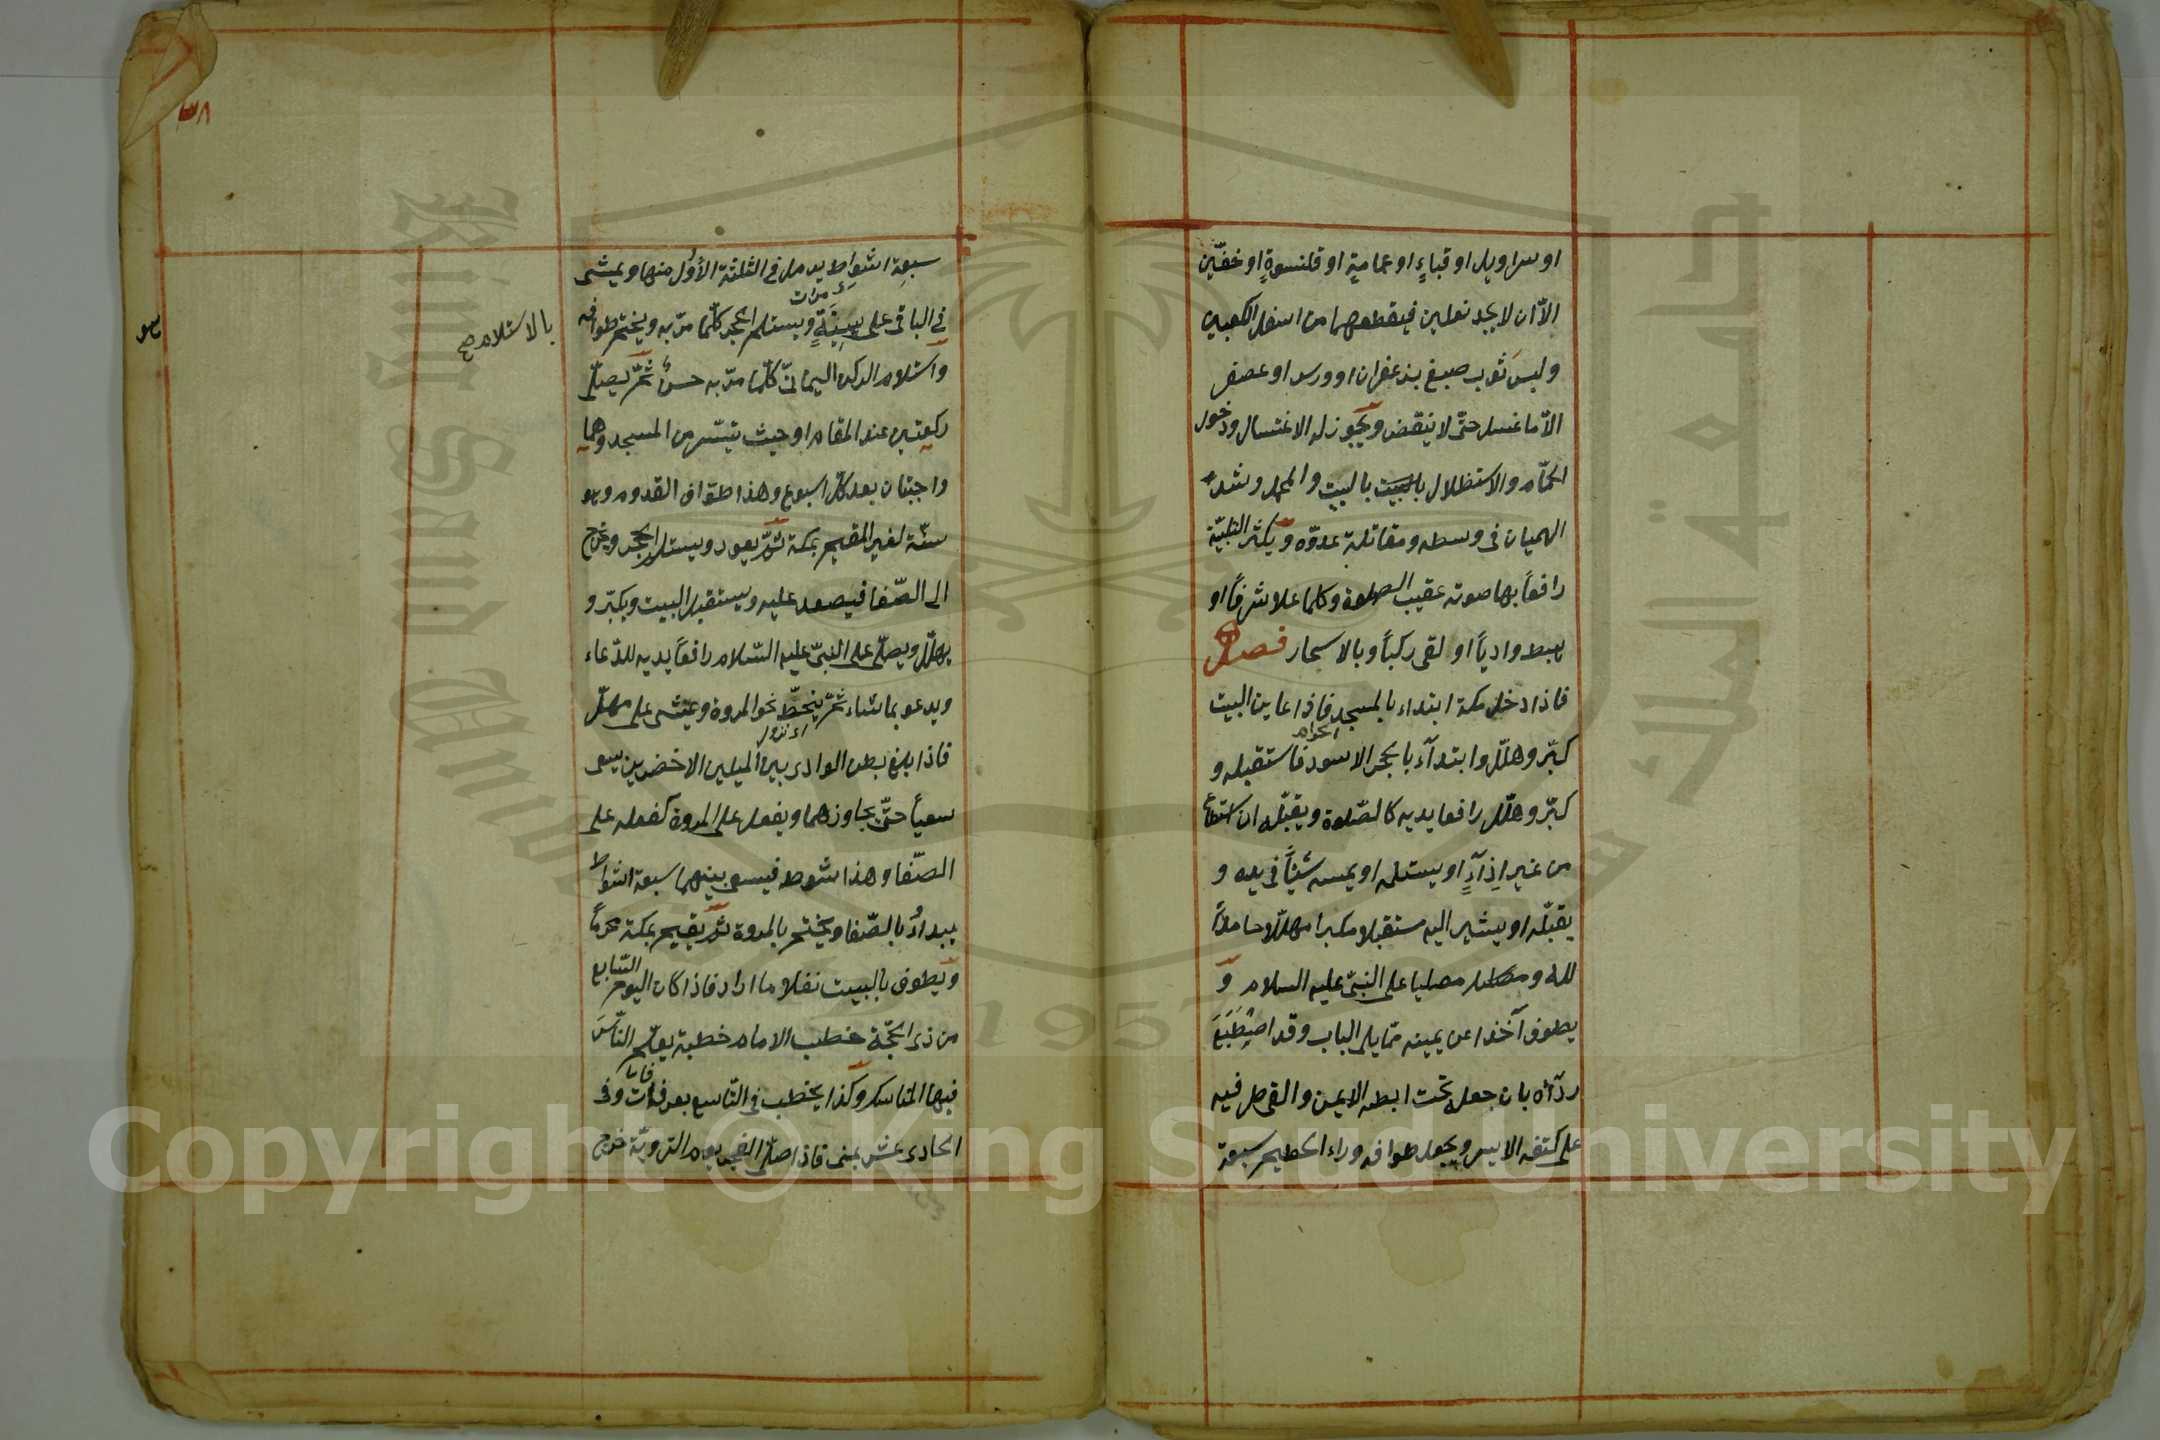 او سراويل او قباءٍ او عمامةٍ او قلنسوةٍ او خفّين
الّا ان لا يجد نعلين فيقطعهما من اسفل الكعبين
ولبس ثوب صبغ بزعفران او ورس او عصفر
الّا ما غسل حتّى لا ينقض ويجوز له الاغتسال ودخول
الحمّام والاستظلال بالبيت بالبيت والمحمل وشدّ
الهميان فى وسطه ومقاتلة عدوّه ويكثر التلبيّة
رافعاً بها صوته عقيب الصلوة وكلما علا شرفاً او
هبط وادياً او لقى ركباً وبالاسحار فصل
فاذا دخل مكة ابتداء بالمسجد فاذا عاين البيت
الحرام
كبّر وهلّل وابتدآء بالحجر الاسود فاستقبله و
كبّر وهلّل رافعا يديه كالصّلوة ويقبّله ان استطاع
من غير اذآءٍ او يستلمه او يمسه شيئاً فى يده و
يقبّله او يشير اليه مستقبلا مكبرا مهلّلا حامداً
لله ومصليا على النبىّ عليه السلام و
يطوف آخذا عن يمينه ممّا يلى الباب وقد اضطبع
ردآه بان جعله تحت ابطه الايمن والقى طرفيه
على كتفه الايسر ويجعل طوافه وراء الحطيم سبعة
٣٨
سبعة اشواط يرمل فى الثلثة الأُول منها ويمشى
فى الباقى على هينةٍ ويستلم الحجر كلّما مرّ به ويختم طوافه
بالاستلام صح
واستلام الركن اليمانىّ كلّما مرّ به حسنٌ ثمّ يصلّى
ركعتين عند المقام او حيث تيسّر من المسجد وهما
واجبتان بعد كلّ اسبوع وهذا طواف القدوم وهو
سنّة لغير المقيم بمكة ثمّ يعود ويستلم الحجر ويخرج
الى الصّفا فيصعد عليه ويستقبل البيت ويكبّر و
يهلّل ويصلّى على النبىّ عليه السّلام رافعاً يديه للدّعاء
ويدعو بما شاء ثمّ ينحطّ نحو المروة ويمشى على مهل
فاذا بلغ بطن الوادى بين الميلين الاخضرين يسعى
سعياً حتّى يجاوزهما ويفعل على المروة كفعله على
الصّفا وهذا شوط فيسعى بينهما سبعة اشواط
يبدأ بالصّفا ويختم بالمروة ثمّ يقيم بمكة محرماً
ويطوف بالبيت نفلا ما اراد فاذا كان اليوم السّابع
من ذى الحجّة خطب الامام خطبة يعلّم النّاسَ
فيها المناسك وكذا يخطب فى التّاسع بعرفات وفى
الحادى عشر بمنى فاذا صلّى الفجر يوم التروية خرج
Copyright © King Saud University
1957